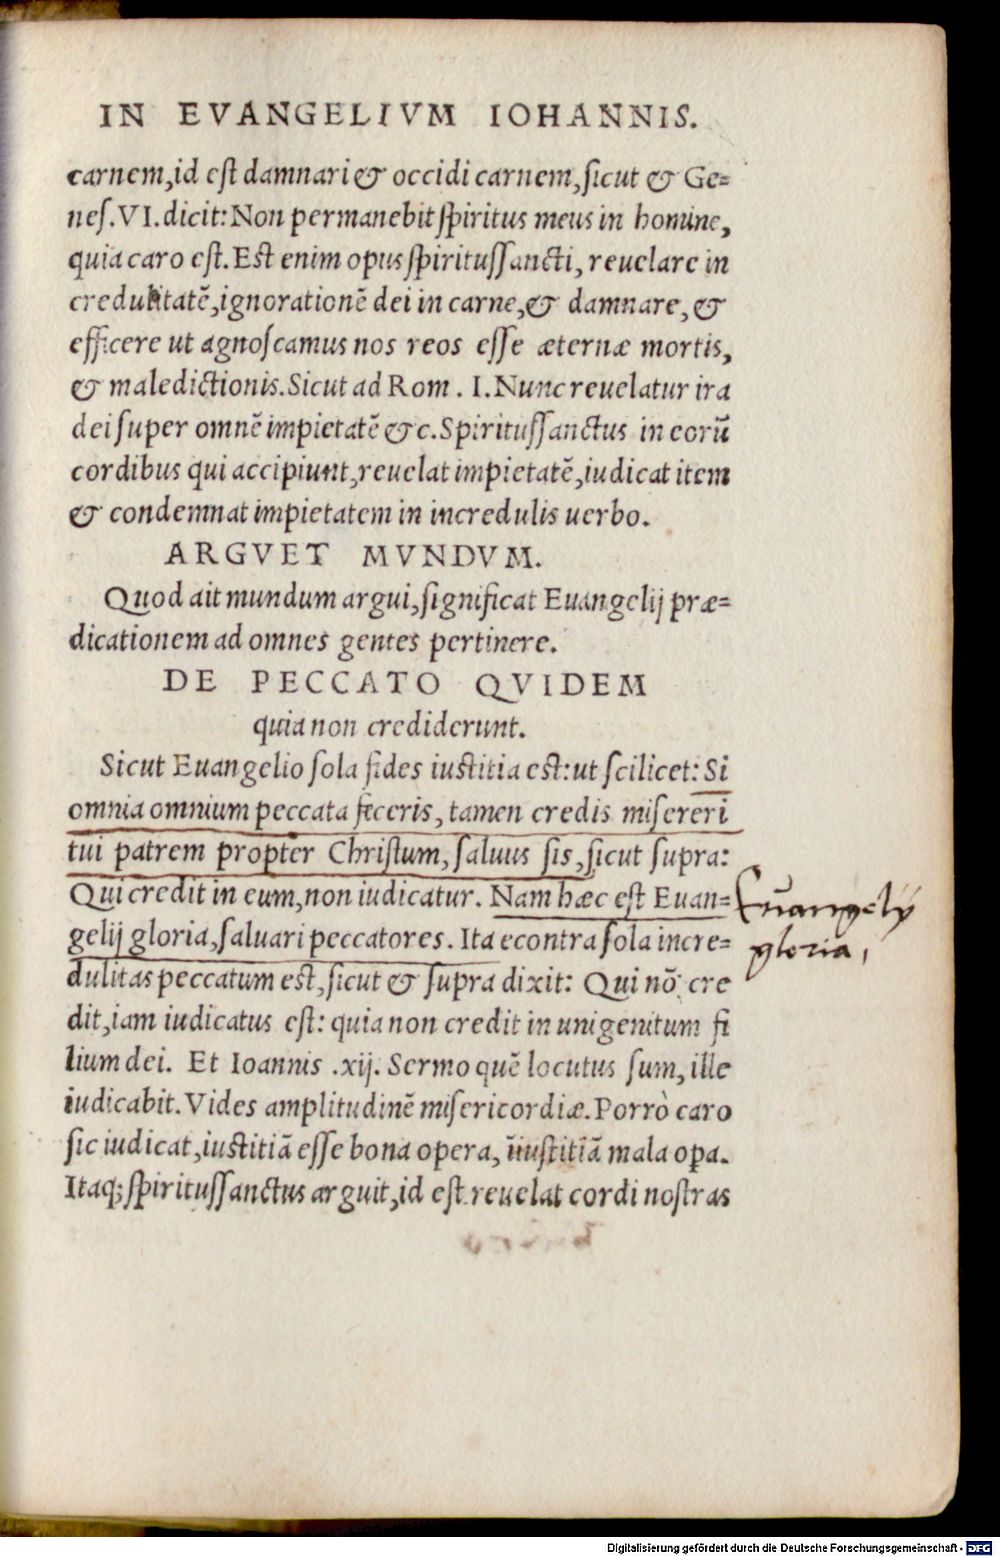 IN EVANGELIVM IOHANNIS.
carnem,id est damnari & occidi carnem,sicut & Ge=
nes.VI.dicit:Non permanebit spiritus meus in homine,
quia caro est.Est enim opus spiritussancti, reuelare in
credulitatē,ignorationē dei in carne,& damnare, &
efficere ut agnoscamus nos reos esse æternæ mortis,
& maledictionis.Sicut ad Rom. I.Nunc reuelatur ira
dei super omnē impietatē &c.Spiritussanctus in eorū
cordibus qui accipiunt,reuelat impietatē,iudicat item
& condemnat impietatem in incredulis uerbo.
ARGVET MVNDVM.
Quod ait mundum argui,significat Euangelij præ=
dicationem ad omnes gentes pertinere.
DE PECCATO QVIDEM
quia non crediderunt.
Sicut Euangelio sola fides iustitia est:ut scilicet: Si
omnia omnium peccata feceris, tamen credis misereri
tui patrem propter Christum, saluus sis,sicut supra:
Qui credit in eum,non iudicatur. Nam hæc est Euan=
gelij gloria,saluari peccatores. Ita econtra sola incre=
dulitas peccatum est,sicut & supra dixit: Qui nō cre
dit,iam iudicatus est: quia non credit in unigenitum fi
lium dei. Et Ioannis .xij. Sermo quē locutus sum, ille
iudicabit.Vides amplitudinē misericordiæ.Porrò caro
sic iudicat,iustitiā esse bona opera, iniustitiā mala opa.
Itaq; spiritussanctus arguit,id est reuelat cordi nostras
Euangelij
gloria,
Digitalisierung gefördert durch die Deutsche Forschungsgemeinschaft - DFG